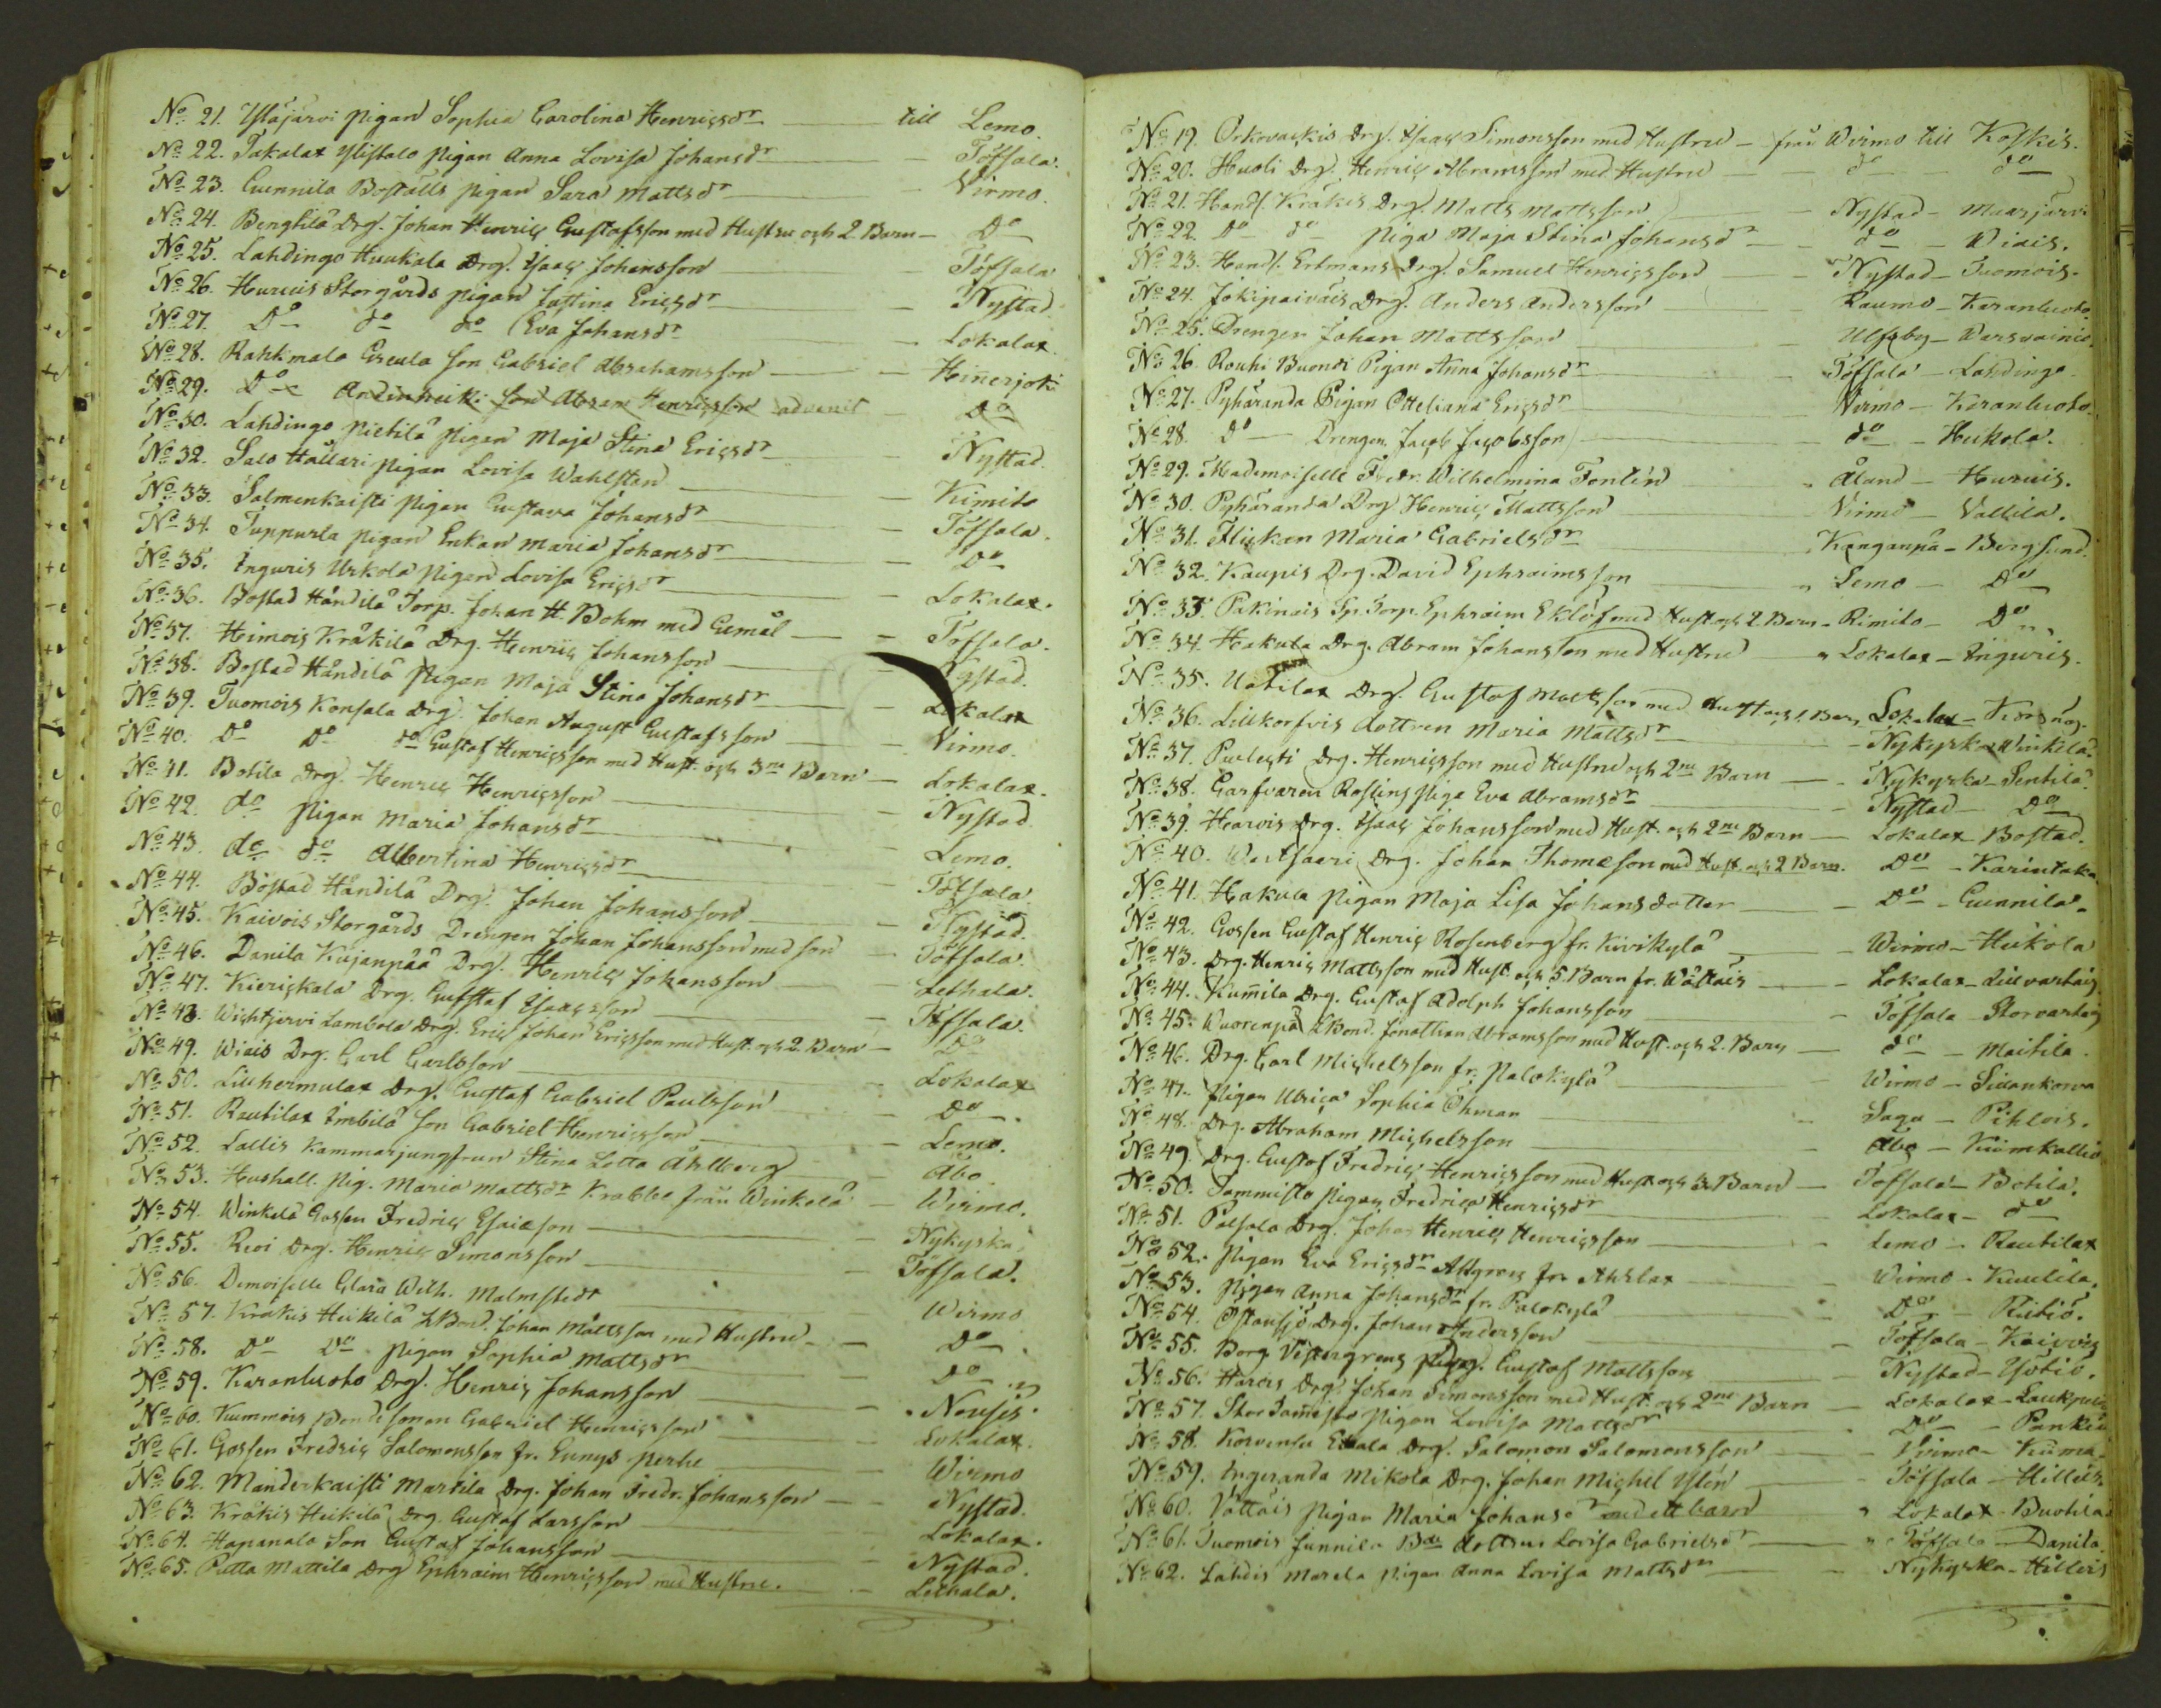 No 21. Yläjärvi pigan Sophia Carolina Henricsdr — till Lemo.
No 22. Takalax Ylistalo pigan Anna Lovisa Johansdr — Töfsala.
No 23. Gunnila Boställs pigan Sara Mattsdr — Virmo.
No 24. Bengtilä Drg. Johan Henric Gustafsson med Hustru och 2 Barn — Do
No 25. Lahdingo Huukala Drg. Isaac Johansson — Töfsala
No 26. Hurnis Storgårds pigan Justina Ericsdr — Nystad.
No 27. Do do do Eva Johansdr — Lokalax.
No 28. Rahkmala Greula son Gabriel Abrahamsson — Hinnerjoki
No 29. Do Anderheiki son Abram Henricsson — Do
No 30. Lahdingo Pietilä pigan Maja Stina Ericsdr — Nystad.
No 32. Salo Hällari pigan Lovisa Wahlsten — Kimito
No 33. Salmenkaisti pigan Gustava Johansdr — Töfsala.
No 34. Tuppurla pigan Enkan Maria Johansdr — Do
No 35. Inguris Uskola pigan Lovisa Ericsdr — Lokalax.
No 36. Bostad Händilä Torp. Johan H. Bohm med Gemål — Töfsala.
No 37. Heimois Kråkilä Drg. Henric Johansson — Nystad.
No 38. Bostad Händilä pigan Maja Stina Johansdr — Lokalax
No 39. Tuomois Konsala Drg. Johan August Gustafsson — Virmo.
No 40. Do Do do Gustaf Henricsson med Hust. och 3ne Barn — Lokalax.
No 41. Botila Drg. Henric Henricsson — Nystad
No 42. do pigan Maria Johansdr — Lemo.
No 43. do do Albertina Henricsdr — Töfsala.
No 44. Bostad Händilä Drg. Johan Johansson — Nystad.
No 45. Kaivois Storgårds Drengen Johan Johansson med son — Töfsala.
No 46. Danila Kujanpää Drg. Henric Johansson — Lethala.
No 47. Kierickala Drg. Gustaf Isacsson — Töfsala.
No 48. Wichtjervi Lambola Drg. Eric Johan Ericsson med Hust. och 2. Barn — Do
No 49. Wiais Drg. Carl Carlsson — Lokalax
No 50. Lillhermulax Drg. Gustaf Gabriel Paulsson — Do.
No 51. Rautilax Imbilä son Gabriel Henricsson — Lemo.
No 52. Lallis Kammarjungfrun Stina Lotta Åhlberg — Åbo.
No 53. Hushåll. pig. Maria Mattsdr Krabbe från Winkelä — Wirmo.
No 54. Winkelä Gossen Fredric Esaieson — Nykyrka.
No 55. Rioi Drg. Henric Simonsson — Töfsala.
No 56. Demoiselle Clara Wilh. Malmstedt — Wirmo
No 57. Kråkis Heikilä LBond. Johan Mattsson med Hustru — Do.
No 58. Do Do pigan Sophia Mattsdr — Do
No 59. Karanluoto Drg. Henric Johansson — Nousis.
No 60. Kummois Bonde sonen Gabriel Henricsson — Lokalax.
No 61. Gossen Fredric Salomonsson fr. Eunys perhe — Wirmo
No 62. Manderkaisti Martila Drg. Johan Fredr. Johansson — Nystad.
No 63. Kråkis Heikilä Drg. Gustaf Larsson — Lokalax.
No 64. Hapanala Son Gustaf Johansson — Nystad.
No 65. Putta Mattila Drg Ephraim Henricsson med Hustru. — Lethala.
No 19. Orkovackis Drg. Isaac Simonsson med Hustru — från Wirmo till Koskis.
No 20. Huoli Drg. Henric Abramsson med Hustru — do do
No 21. Handl. Kråkes Drg. Matts Mattsson — Nystad — Maarjärvi
No 22. Do do piga Maja Stina Johansdr — do — Wiais.
No 23. Handl. Ertmans Drg. Samuel Henricsson — Nystad — Tuomois.
No 24. Jokipaiväis Drg. Anders Andersson — Raumo — Karanluoto.
No 25. Drengen Johan Mattsson — Ulfsby — Varsvainio.
No 26. Rouhi Buondi Pigan Anna Johansdr — Töfsala — Lahdingo.
No 27. Pyhäranda Pigan Otteliana Ericsdr — Virmo — Karanluoto.
No 28. Do — Drengen Jacob Jacobsson — do — Heikola.
No 29. Mademoiselle Fredr. Wilhelmina Fonlén — Åland — Hurnis.
No 30. Pyhäranda Drg Henric Mattsson — Virmo — Vallila.
No 31. Flickan Maria Gabrielsdr — Kanganpä — Bergsund.
No 32. Kaupis Drg. David Ephraimsson — Lemo — Do
No 33. Pakinais Sp. Torp. Ephraim Eklöf med Hust. och 2. Barn — Rimito — Do
No 34. Hakula Drg. Abram Johansson med Hustru — Lokalax — Inguris.
No 35. Uatilax Drg. Gustaf Mattsson med Hust. och 1. Barn, Lokalax —
No 36. Lillkorfvis dottren Maria Mattsdr — Nykyrka — Winkilä.
No 37. Puolesti Drg. Henricsson med Hustru och 2ne Barn — Nykyrka — Sentilä.
No 38. Garfvaren Roslins piga Eva Abramsdr — Nystad — Do
No 39. Hearvis Drg. Isaac Johansson med Hust. och 2ne Barn — Lokalax — Bostad.
No 40. Wartsaari Drg. Johan Thomeson med Hust. och 2 Barn. Do — Karintaka
No 41. Hakula pigan Maja Lisa Johansdotter — Do — Gunnila.
No 42. Gossen Gustaf Henric Rosenberg fr. Kivikylä — Wirmo — Heikola
No 43. Drg. Henric Mattsson med Hust. och 5. Barn fr. Wättäis — Lokalax — Lillvartsig
No 44. Kummila Drg. Gustaf Adolph Johansson — Töfsala — Storvartsig
No 45. Wuorenpä LBond. Jonathan Abramsson med Hust. och 2. Barn — do — Maitila.
No 46. Drg. Carl Michelsson fr. Palokylä — Wirmo — Siuankorva
No 47. Pigan Ulrica Sophia Öhman — Sagu — Pihlois.
No 48. Drg. Abraham Michelsson — Åbo — Kuomkallio
No 49 Drg. Gustaf Fredric Henricsson med Hust. och 3 Barn — Töfsala — Botila.
No 50. Tammisto pigan Fredrica Henricsdr — Lokalax — do
No 51. Palsala Drg. Johan Henric Henricsson — Lemo — Rautilax
No 52. Pigan Eva Ericsdr Allgren fr. Ahklax — Wirmo — Kuulila.
No 53. Pigan Anna Johansdr fr. Palokylä — Do — Riitiö.
No 54. Östansjö Drg. Johan Andersson — Töfsala — Kaivois
No 55. Borg. Vestergrens Drg. Gustaf Mattsson — Nystad — Ysötiö.
No 56. Harois Drg. Johan Simonsson med Hust. och 2ne Barn — Lokalax —
No 57. Stor Tammisto pigan Lovisa Mattsdr — Do —
No 58. Korvensu Etala Drg. Salomon Salomonsson — Virmo —
No 59. Ingeranda Mikola Drg. Johan Michel Yslén — Töfsala — Hilluis.
No 60. Vättäis pigan Maria Johansdr med ett barn — Lokalax — Buotila
No 61. Tuomois Junnila Bde dottren Lovisa Gabrielsdr — Töfsala — Danila.
No 62. Lahdis Marela pigan Anna Lovisa Mattsdr — Nykyrka — Hilleis